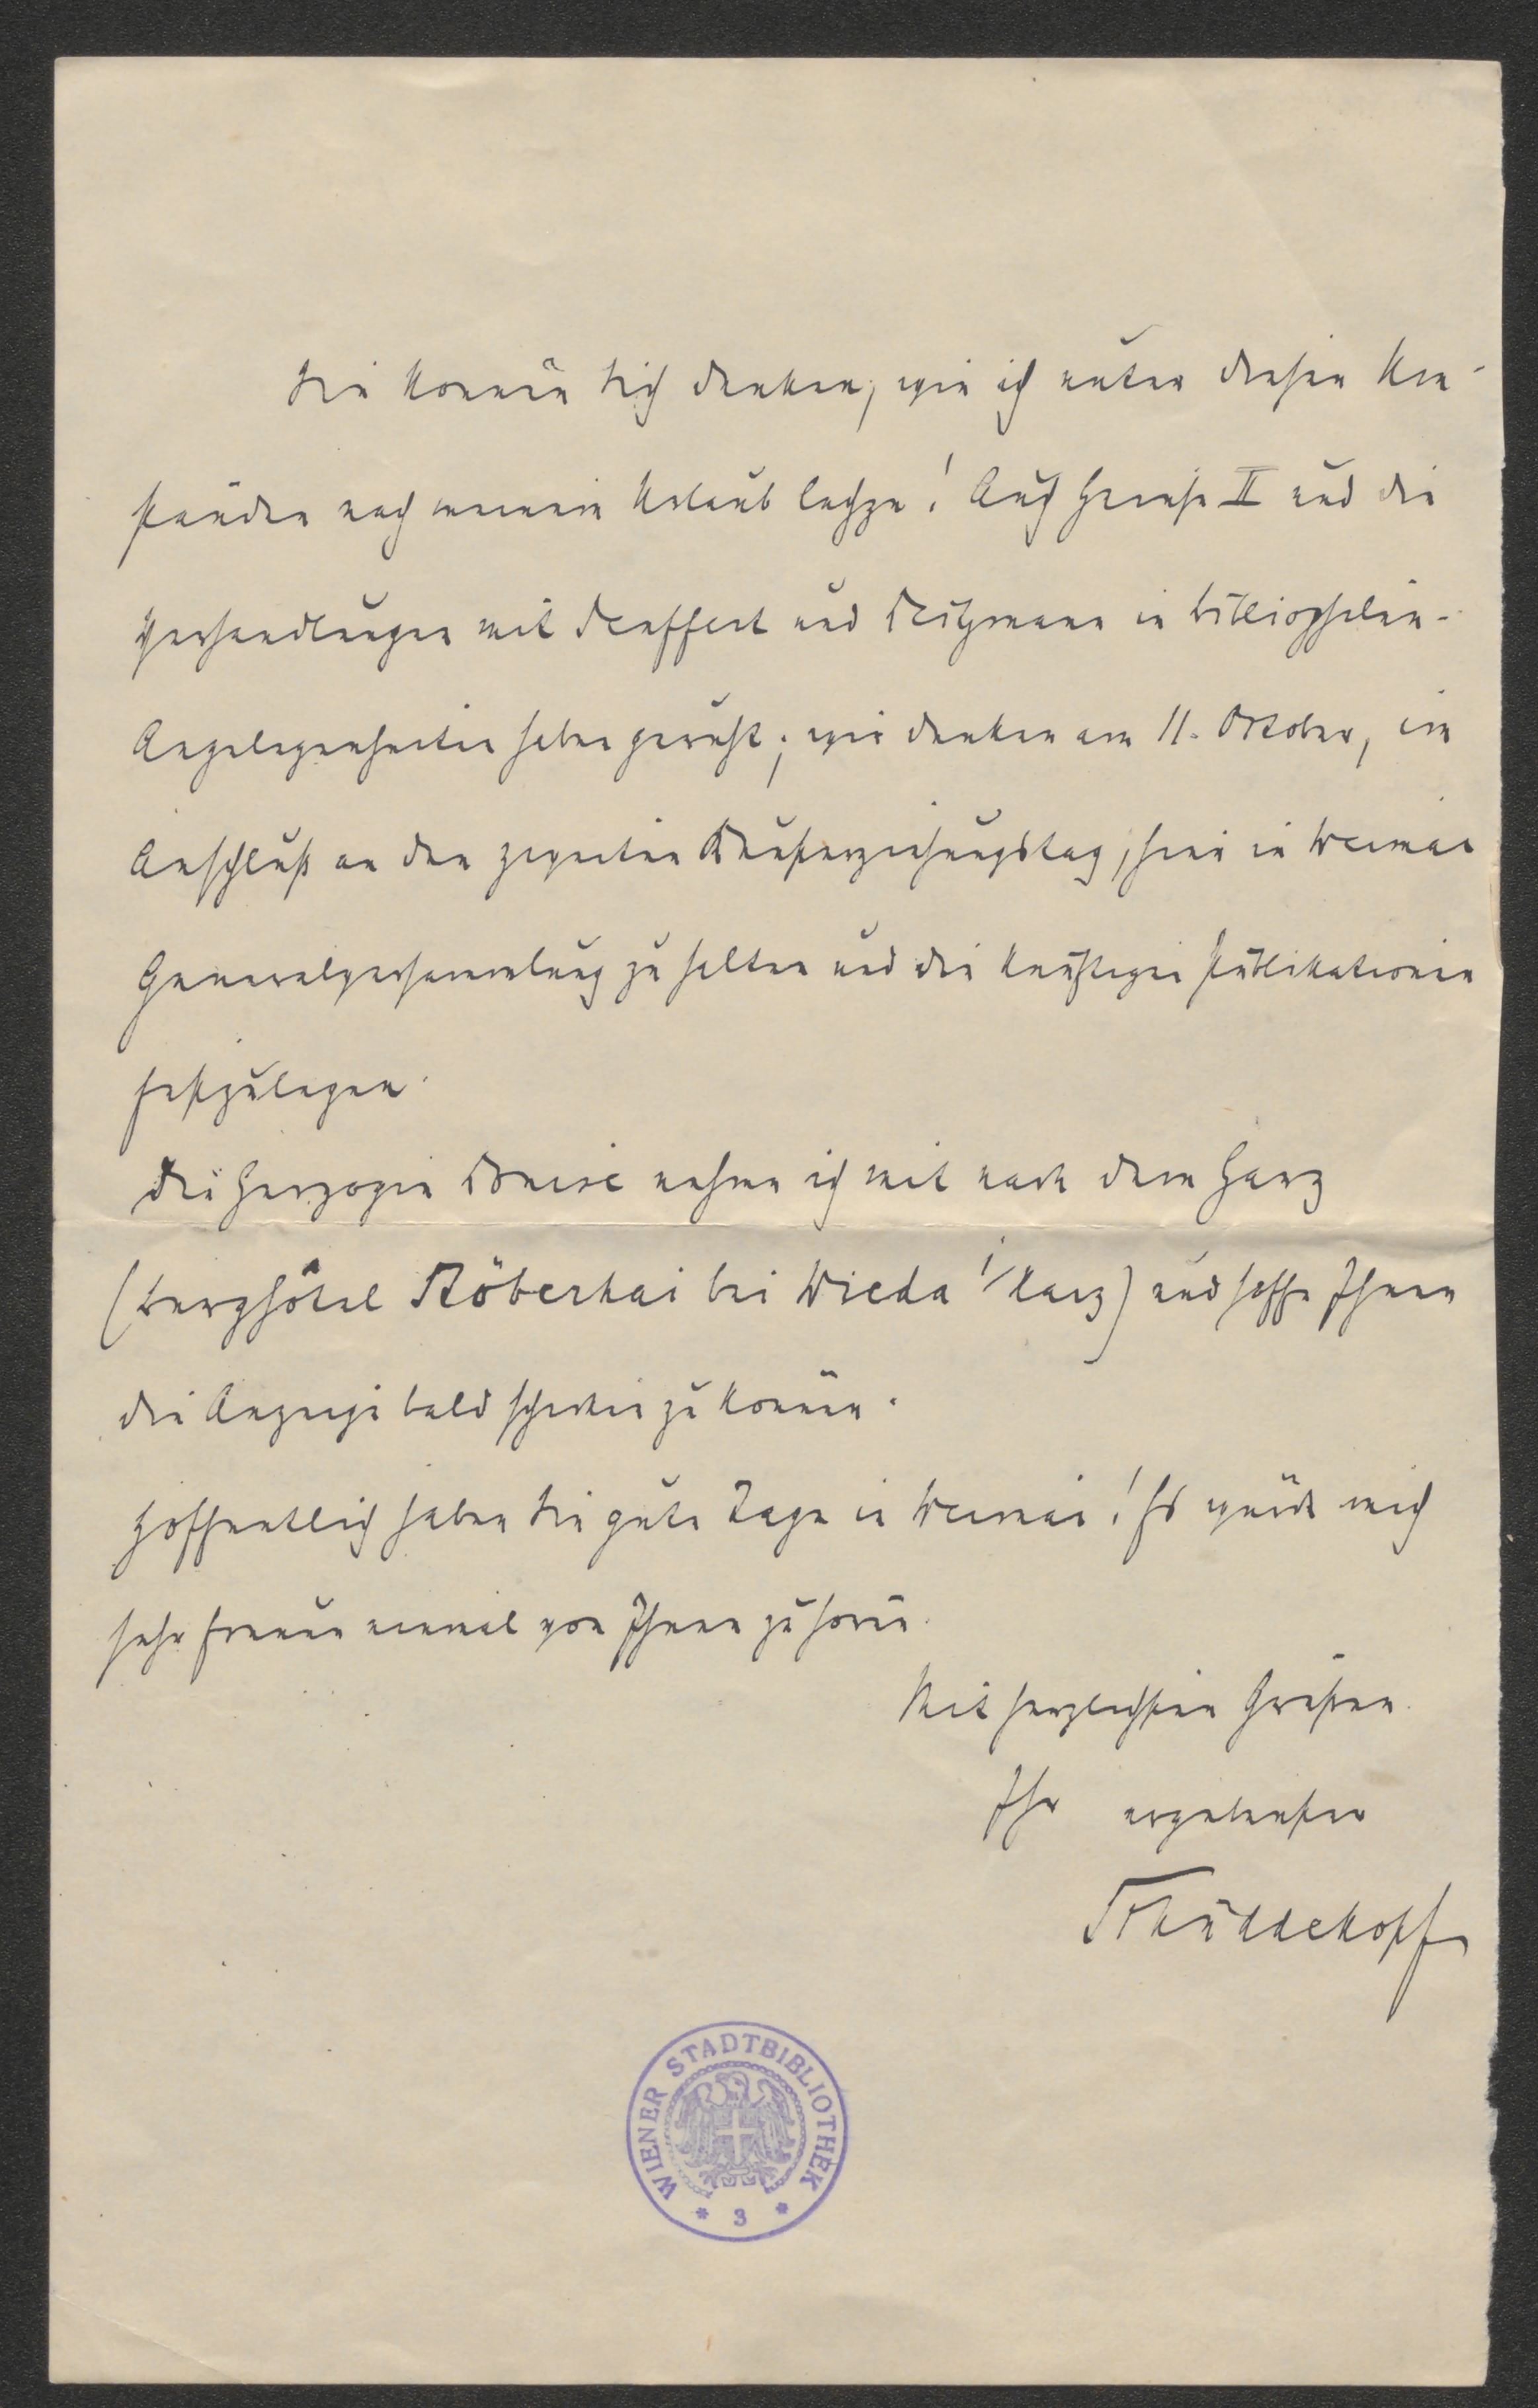 Sie können sich denken, wie ich unter diesen Um-
ständen nach meinem Urlaub lechze! Auch Heinse II und die
Verhandlungen mit Deneffert und Witkowski in Bibliophilen-
Angelegenheiten haben geruht; wir denken am 11. Oktober, im
Anschluß an den zweiten Kunsterziehungstag, hier in Weimar
Generalversammlung zu halten und die künftigen Publikationen
festzulegen.
Die Herzogin Louise nehme ich mit nach dem Harz
(Berghôtel Stöberhai bei Wieda i/Harz) und hoffe Ihnen
die Anzeige bald schicken zu können.
Hoffentlich haben Sie gute Tage in Weimar! Es würde mich
sehr freuen einmal von Ihnen zu hören.
Mit herzlichsten Grüßen
Ihr ergebenster
Schüddekopf
WIENER STADTBIBLIOTHEK
* 3 *